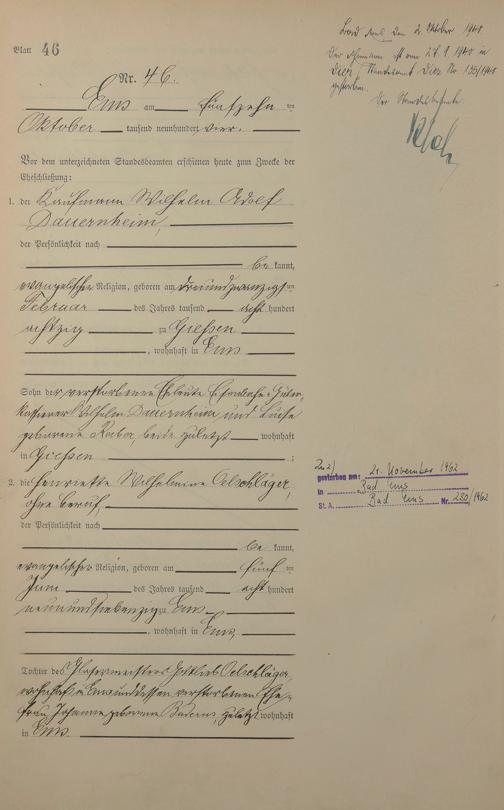 Blatt 46
Nr. 46.
Ems am fünfzehn ten
Oktober tausend neunhundert vier.
Vor dem unterzeichneten Standesbeamten erschienen heute zum Zwecke der
Eheschließung:
1. der Kaufmann Wilhelm Adolf
Dauernheim,
der Persönlichkeit nach
be kannt,
evangelischer Religion, geboren am dreiundzwanzigsten
Februar des Jahres tausend acht hundert
achtzig zu Gießen
, wohnhaft in Ems
Sohn der verstorbenen Eheleute Eisenbahn-Güter-
kassierer Wilhelm Dauernheim und Luise
geborene beide zuletzt wohnhaft
in Gießen ;
2. die Henriette Wilhelmine Oelschläger,
ohne Beruf,
der Persönlichkeit nach
be kannt,
evangelischer Religion, geboren am fünf ten
Juni des Jahres tausend acht hundert
neunundsiebenzig zu Ems
, wohnhaft in Ems,
Tochter des Glasermeisters Gottlieb Oelschläger,
wohnhaft in Ems und dessen verstorbenen Ehe-
frau Johanna geborenen zuletzt wohnhaft
in Ems.
Bad Ems, den 2. Oktober 1941
Der Ehemann ist am 27.9.1941 in
Diez Standesamt Diez Nr. 135/1941
gestorben.
Der Standesbeamte.
Zu 2)
gestorben am: 21. November 1962
in Bad Ems
St. A. Bad Ems Nr. 280/1962